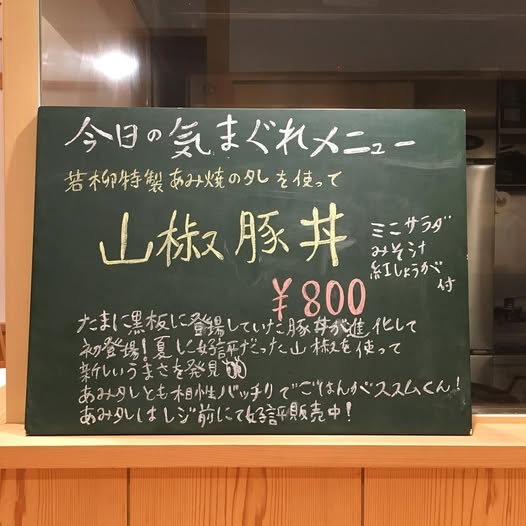 今日の気まぐれメニュー
若柳特製あみ焼のタレを使って
山椒豚丼
ミニサラダ
みそ汁
紅しょうが
付
¥800
たまに黒板に登場していた豚丼が進化して
初登場!夏に好評だった山椒を使って
新しいうまさを発見
あみタレとも相性バッチリでごはんがススムくん!
あみタレはレジ前にて好評販売中!